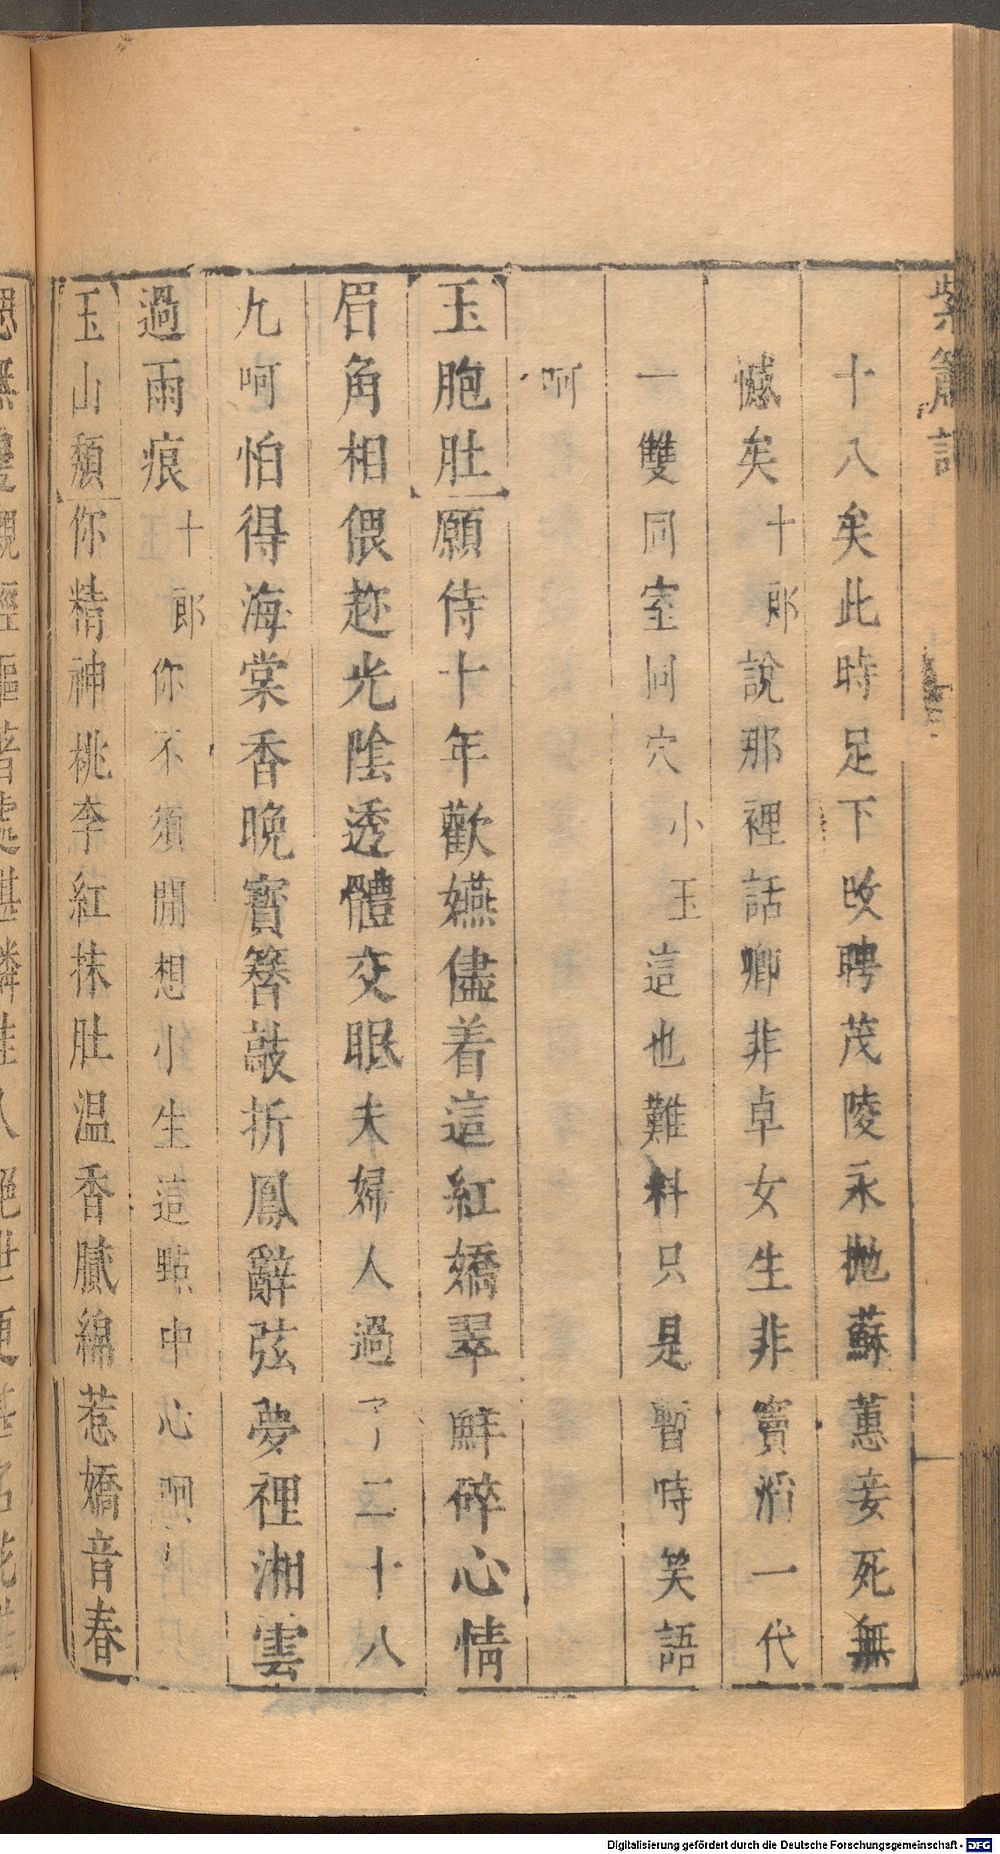 紫簫記
十八矣此時足下改聘茂陵永拋蘇蕙妾死無
憾矣十郎說那裡話卿非卓女生非竇滔一代
一雙同室同穴小玉這也難料只是暫時笑語
呵
玉胞肚願侍十年歡嬿儘着這紅嬌翠鮮碎心情
眉角相偎趂光陰透體交眠夫婦人過了二十八
九呵怕得海棠香晚寶簪敲折鳳辭弦夢裡湘雲
過雨痕十郎你不須閒想小生這點中心呵
玉山頹你精神桃李紅抹肚温香膩綿惹嬌音春
Digitalisierung gefördert durch die Deutsche Forschungsgemeinschaft - DFG